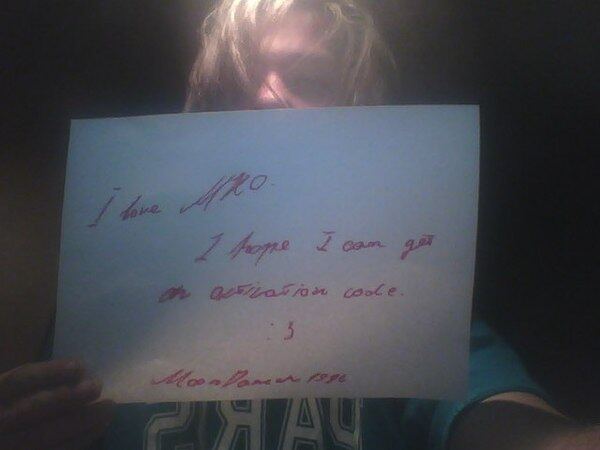 I love
I hope I can get
an activation code.
:3
MoonDancer1996